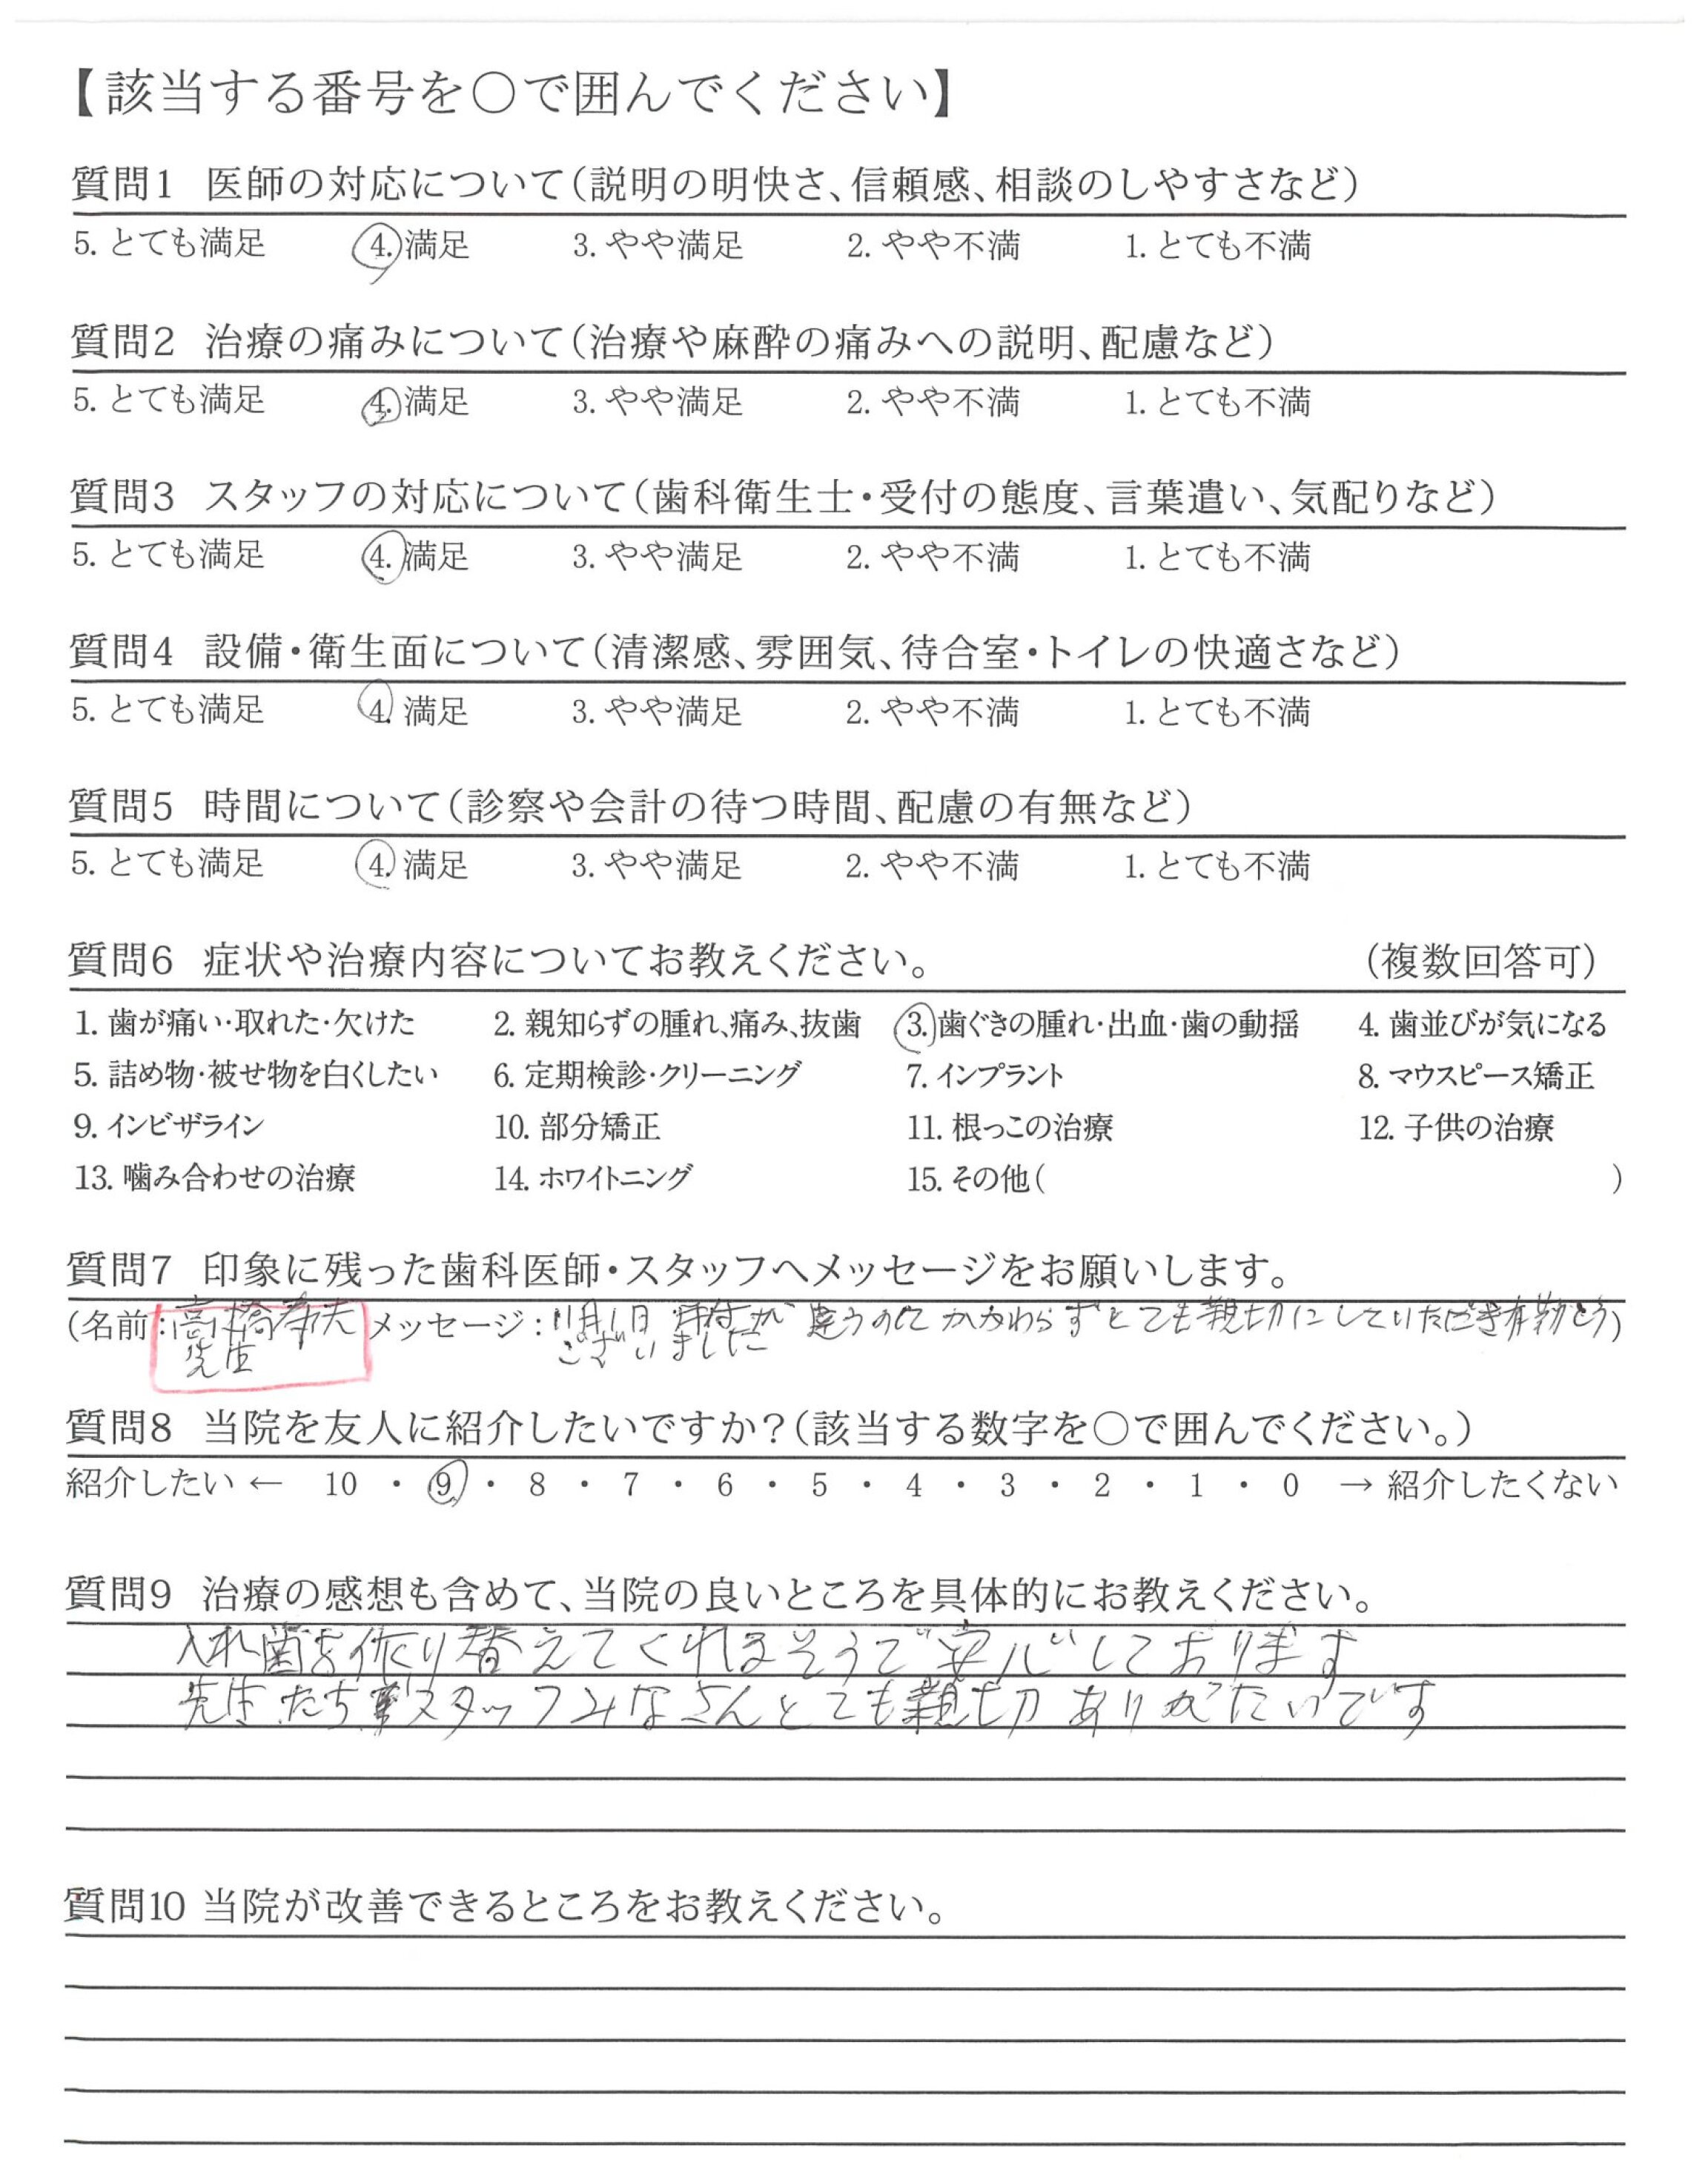 【該当する番号を○で囲んでください】
質問1 医師の対応について(説明の明快さ、信頼感、相談のしやすさなど)
5. とても満足 4. 満足 3. やや満足 2. やや不満 1. とても不満
質問2 治療の痛みについて(治療や麻酔の痛みへの説明、配慮など)
5. とても満足 4. 満足 3. やや満足 2. やや不満 1. とても不満
質問3 スタッフの対応について(歯科衛生士・受付の態度、言葉遣い、気配りなど)
5. とても満足 4. 満足 3. やや満足 2. やや不満 1. とても不満
質問4 設備・衛生面について(清潔感、雰囲気、待合室・トイレの快適さなど)
5. とても満足 4. 満足 3. やや満足 2. やや不満 1. とても不満
質問5 時間について(診察や会計の待つ時間、配慮の有無など)
5. とても満足 4. 満足 3. やや満足 2. やや不満 1. とても不満
質問6 症状や治療内容についてお教えください。 (複数回答可)
1. 歯が痛い・取れた・欠けた 2. 親知らずの腫れ、痛み、抜歯 3. 歯ぐきの腫れ・出血・歯の動揺 4. 歯並びが気になる
5. 詰め物・被せ物を白くしたい 6. 定期検診・クリーニング 7. インプラント 8. マウスピース矯正
9. インビザライン 10. 部分矯正 11. 根っこの治療 12. 子供の治療
13. 噛み合わせの治療 14. ホワイトニング 15. その他( )
質問7 印象に残った歯科医師・スタッフへメッセージをお願いします。
(名前:高橋 メッセージ:11月1日 が違うのにかかわらずとても親切にしていただき有難とう)
先生 ございました
質問8 当院を友人に紹介したいですか?(該当する数字を○で囲んでください。)
紹介したい ← 10 ・ 9 ・ 8 ・ 7 ・ 6 ・ 5 ・ 4 ・ 3 ・ 2 ・ 1 ・ 0 → 紹介したくない
質問9 治療の感想も含めて、当院の良いところを具体的にお教えください。
入れ歯を作り替えてくれるそうで安心しております
先生たちスタッフみなさんとても親切ありがたいです
質問10 当院が改善できるところをお教えください。